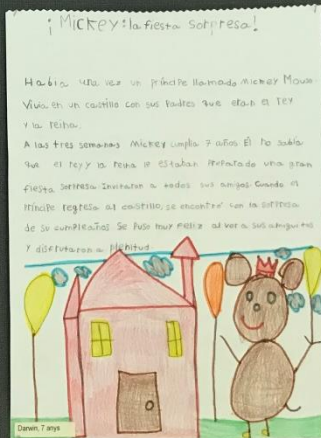 ¡Mickey: la fiesta sorpresa!
Había una vez un príncipe llamado Mickey Mouse.
Vivía en un castillo con sus padres que eran el rey
y la reina.
A las tres semanas Mickey cumplía 7 años Él no sabía
que el rey y la reina le estaban preparado una gran
fiesta sorpresa Invitaron a todos sus amigos. Cuando el
príncipe regresa al castillo, se encontró con la sorpresa
de su cumpleaños Se puso muy feliz al ver a sus amiguitos
y disfrutaron a plenitud.
Darwin, 7 anys